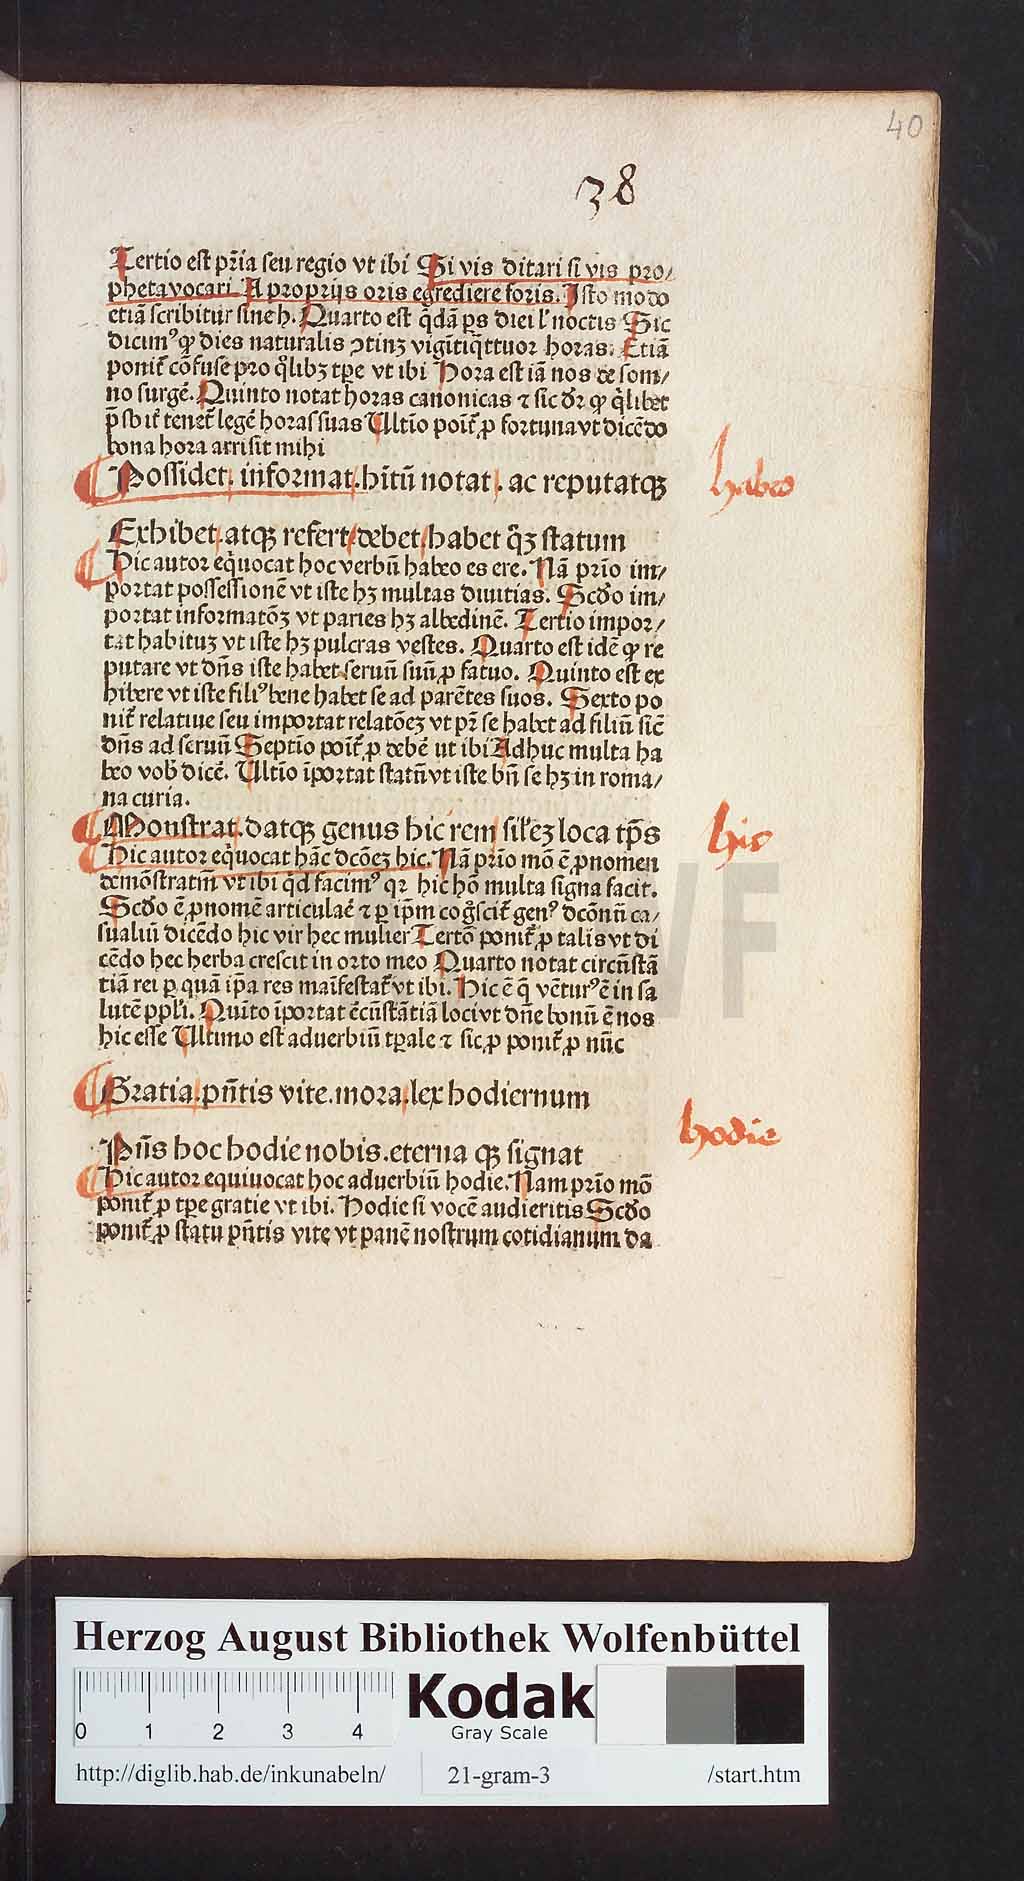 40
38
Tertio est pr̄ia seu regio vt ibi Si vis ditari si vis pro/
pheta vocari A proprijs oris egrediere foris. Isto modo
etiā scribitur sine h. Quarto est q̄dā ps diei l' noctis Sic
dicimꝰ ꝙ dies naturalis ↄtinꝫ vigīti q̄ttuor horas. Etiā
ponit̄ cōfuse pro q̄libꝫ tꝑe vt ibi Hora est iā nos de som/
no surgē. Quinto notat horas canonicas ⁊ sic dr̄ ꝙ q̄libet
p̄sbit̄ tenet̄ legē horas suas Vltīo poīt̄ ꝓ fortuna vt dicēdo
bona hora arrisit mihi
Possidet. informat. hītū notat. ac reputatqꝫ
habeo
Exhibet. atqꝫ refert/ debet/ habet q̄ꝫ statum
Hic autor eq̄uocat hoc verbū habeo es ere. Nā prīo im/
portat possessionē vt iste hꝫ multas diuitias. Scd̄o im/
portat informatōꝫ vt paries hꝫ albedinē. Tertio impor/
tat habituꝫ vt iste hꝫ pulcras vestes. Quarto est idē ꝙ re
putare vt dn̄s iste habet seruū suū ꝓ fatuo. Quinto est ex
hibere vt iste filiꝰ bene habet se ad parētes suos. Sexto po
nit̄ relatiue seu importat relatōeꝫ vt pr̄ se habet ad filiū sic̄
dn̄s ad seruū Septīo poīt̄ ꝓ debē ut ibi Adhuc multa ha
beo vob̄ dicē. Vltīo īportat statū vt iste bn̄ se hꝫ in roma/
na curia.
Monstrat. datqꝫ genus hic rem sil'eꝫ loca tp̄s
hic
Hic autor eq̄uocat hāc dcōeꝫ hic. Nā prīo mō ē ꝓnomen
demōstratiū vt ibi q̄d facimꝰ qꝛ hic hō multa signa facit.
Scd̄o ē ꝓnomē articulae̅ ⁊ ꝑ ip̄m cog̊scit̄ genꝰ dcōnū ca/
sualiū dicēdo hic vir hec mulier Tertō ponit̄ ꝓ talis vt di
cēdo hec herba crescit in orto meo Quarto notat circūstā
tiā rei ꝑ quā ip̄a res maīfestat̄ vt ibi. Hic ē q̄ vēturꝰ ē in sa
lutē ppl'i. Quīto īportat c̄cūstātiā loci vt dn̄e bonū ē nos
hic esse Vltimo est aduerbiū tꝑale ⁊ sic ꝓ ponit̄ ꝓ nūc
Gratia. pn̄tis vite. mora. lex hodiernum
hodie
Pn̄s hoc hodie nobis. eterna qꝫ signat
Hic autor equiuocat hoc aduerbiū hodie. Nam prīo mō
ponit̄ ꝓ tꝑe gratie vt ibi. Hodie si vocē audieritis Scd̄o
ponit̄ ꝓ statu pn̄tis vite vt panē nostrum cotidianum da
Herzog August Bibliothek Wolfenbüttel
0 1 2 3 4
Kodak
Gray Scale
http://diglib.hab.de/inkunabeln/ 21-gram-3 /start.htm